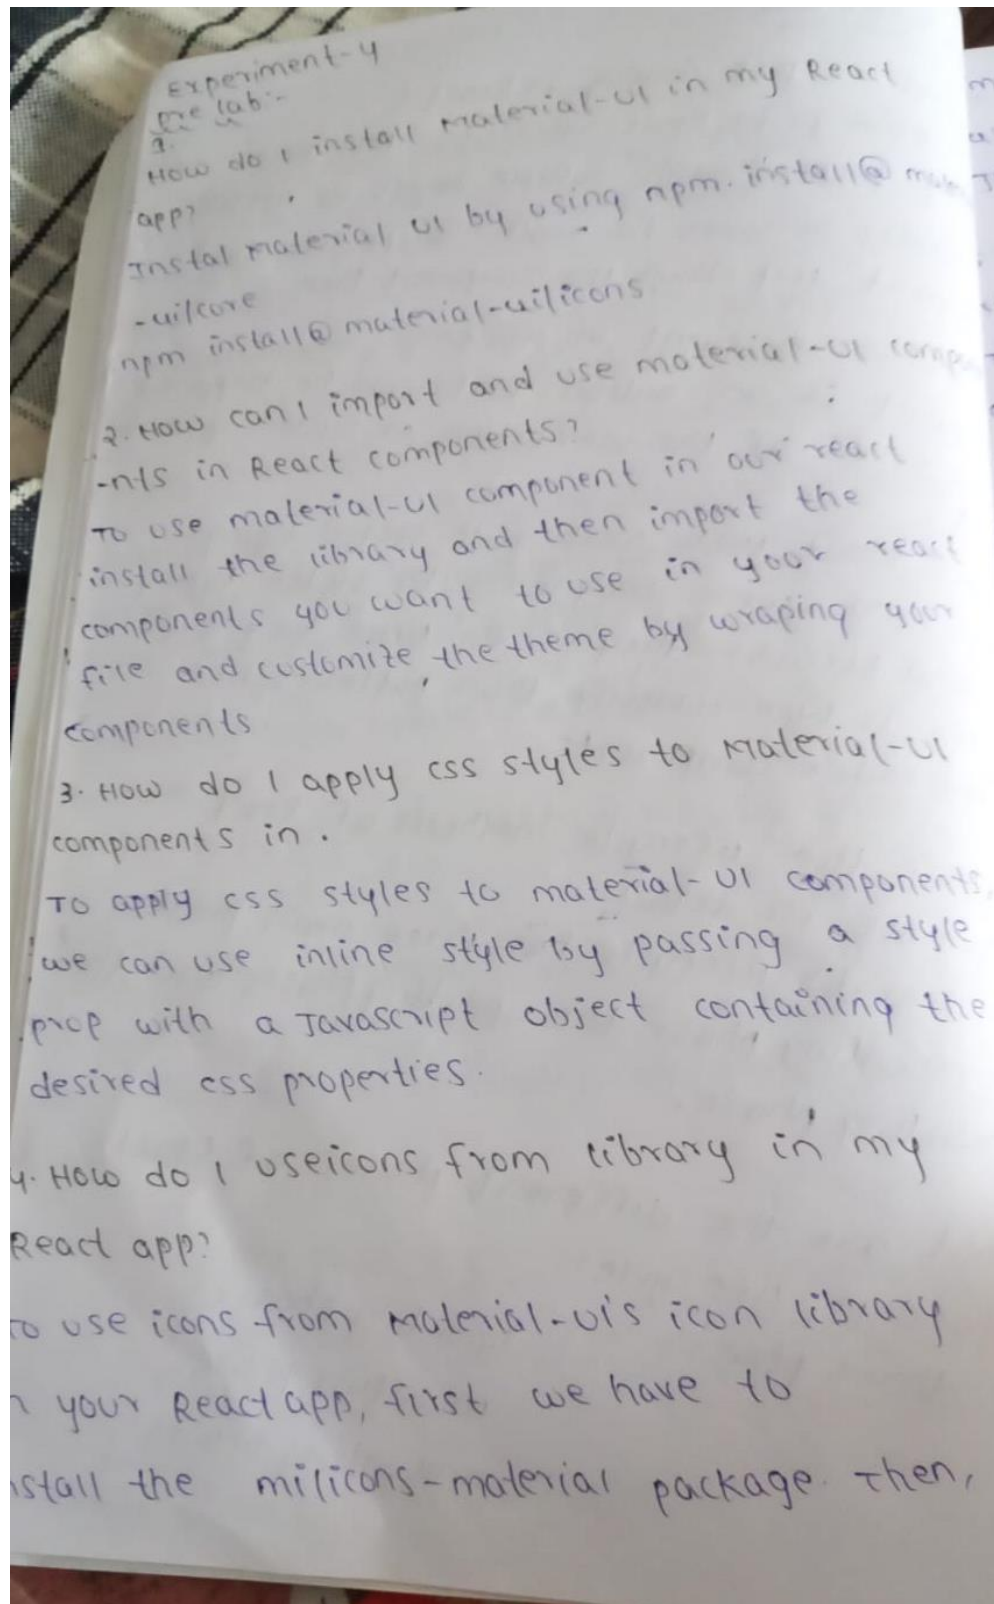 Experiment-4
pre lab:-
1.
How do I install Material-UI in my React
app?
Instal Material UI by using npm. install@
-ui/core
npm install@material-ui/icons
2. How can I import and use material-UI
-nts in React components?
To use material-UI component in our react
install the library and then import the
components you want to use in your react
file and customize the theme by wraping your
components
3. How do I apply css styles to Material-UI
components in.
To apply css styles to material-UI components,
we can use inline style by passing a style
prop with a Javascript object containing the
desired css properties.
4. How do I useicons from library in my
React app?
To use icons from Material-UI's icon library
your React app, first we have to
nstall the milicons-material package. Then,